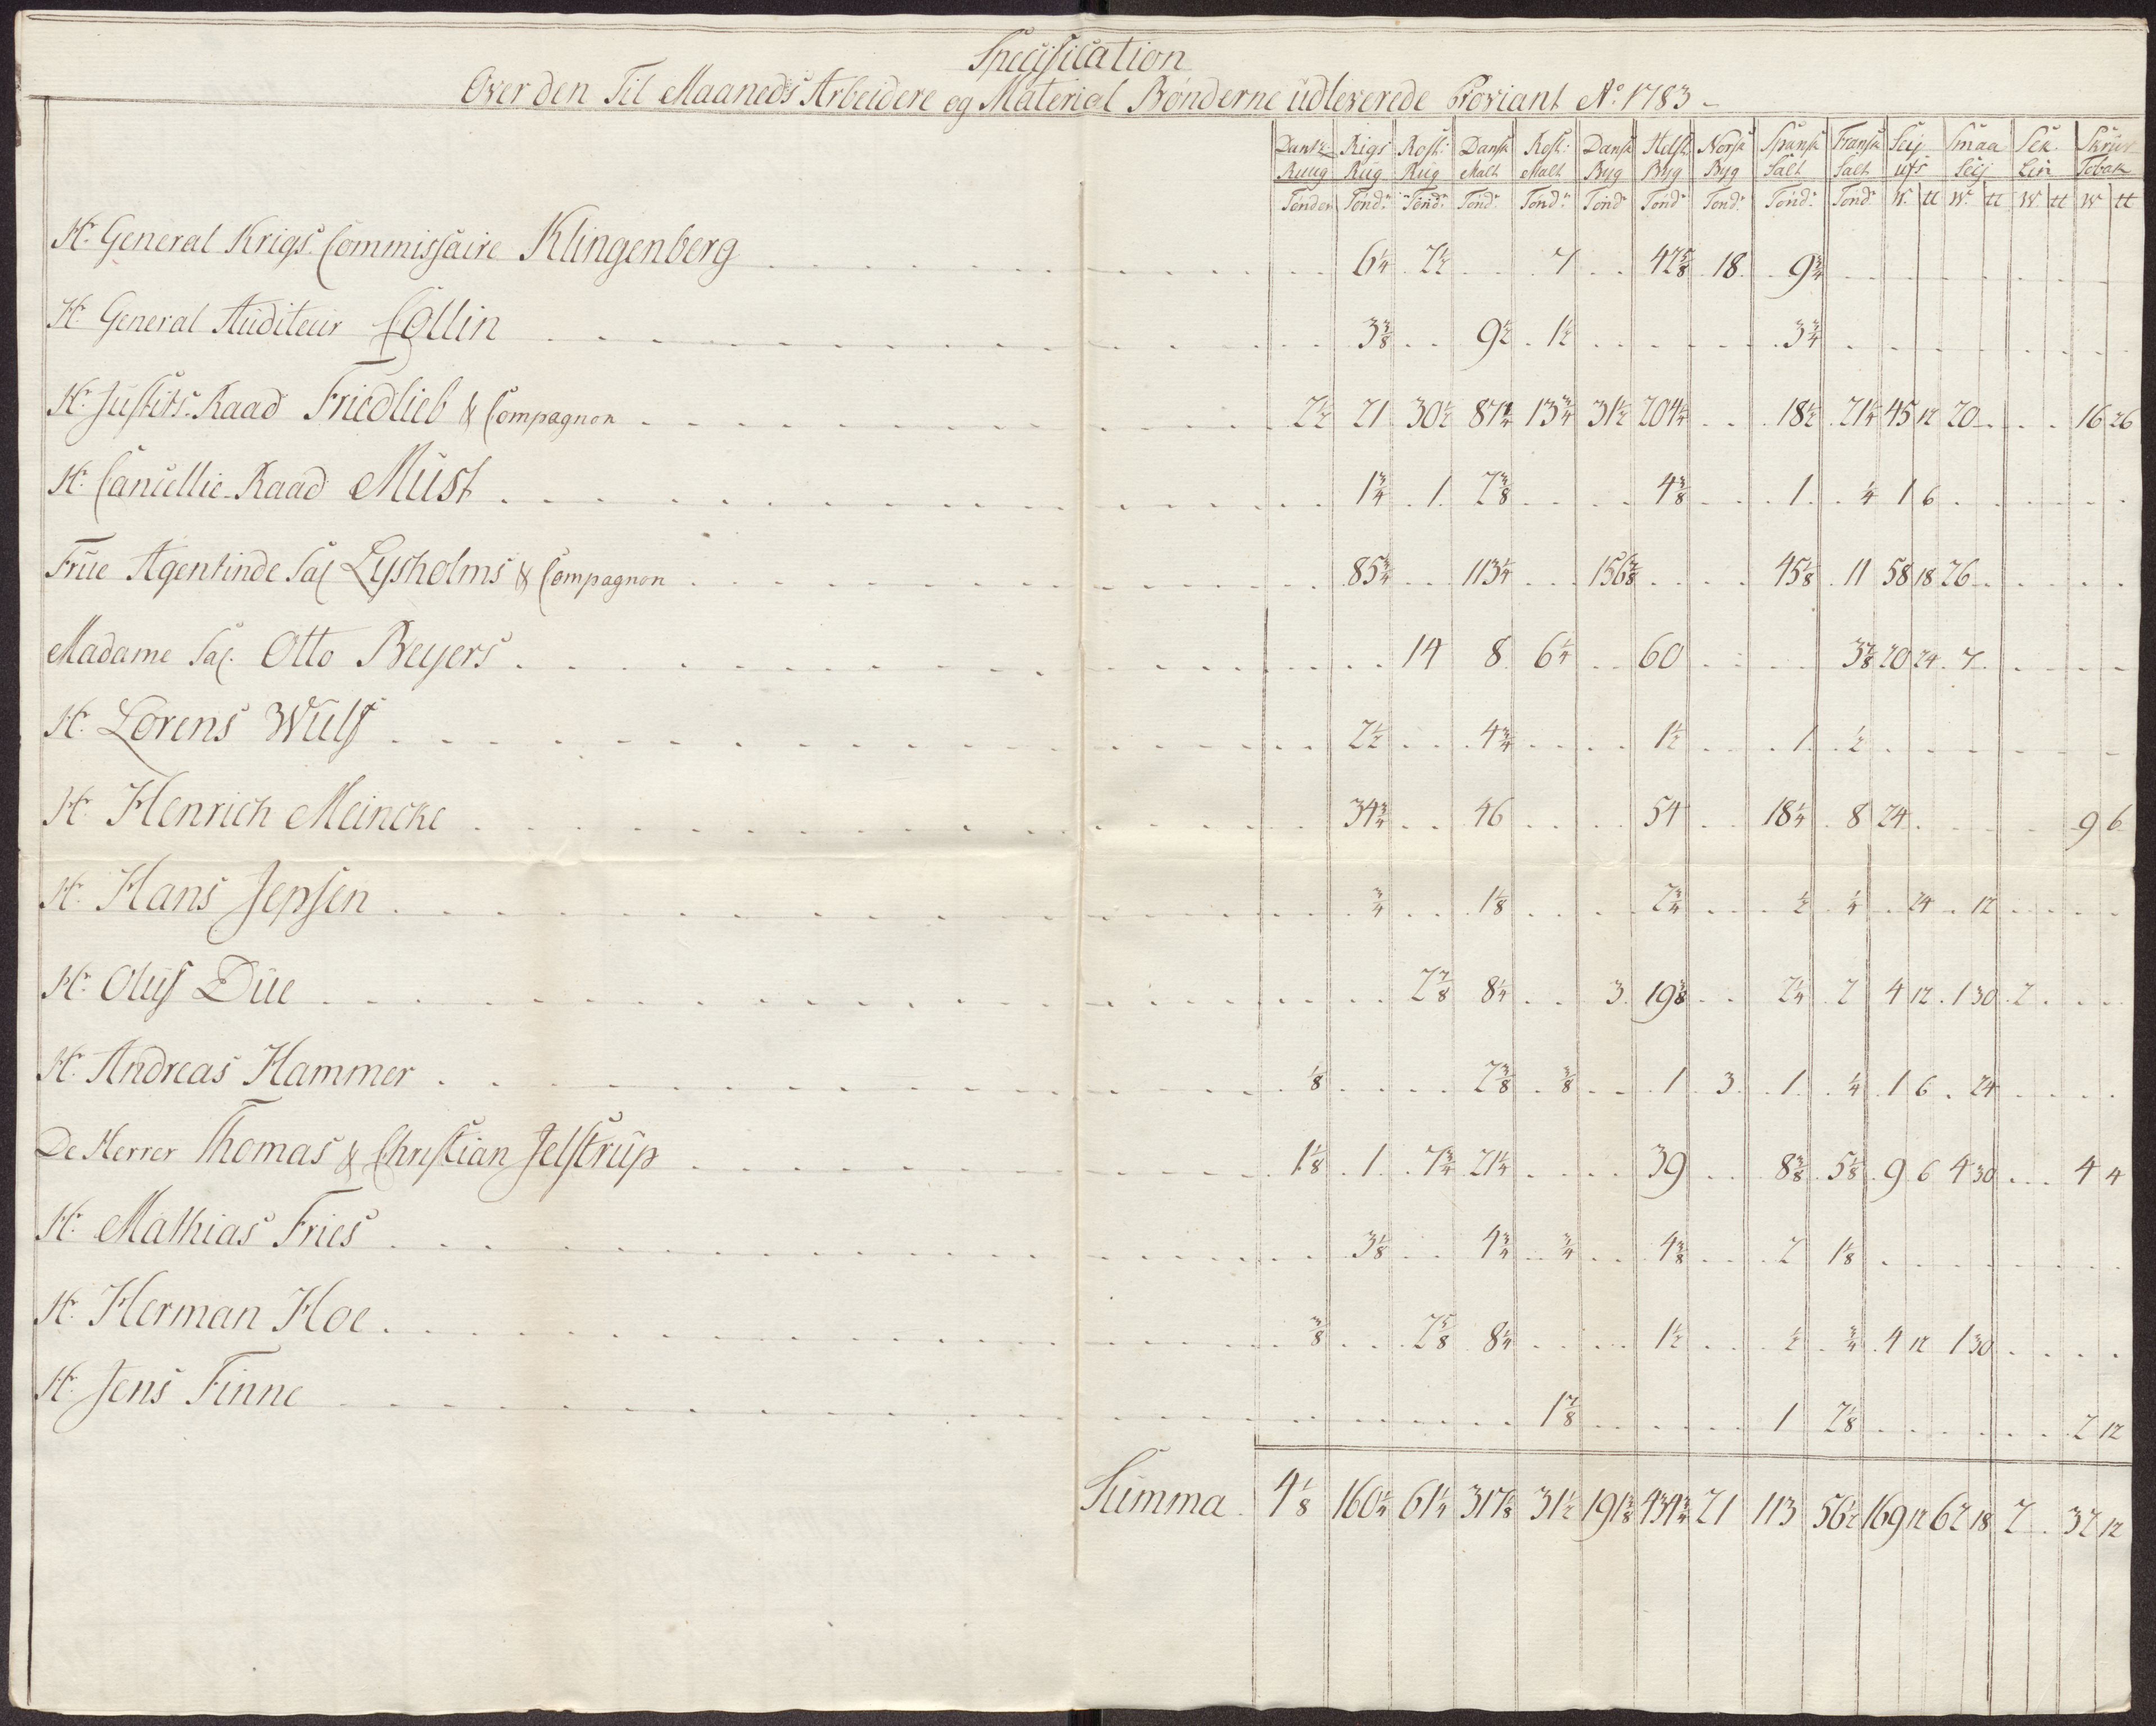 Specification
Over den Til Maaneds Arbeidere og Material Bønderne üdleverede Proviant Aº 1783
Dansk Rigs Rost: Dansk Rost: Dansk Holst: Norsk Spansk Fransk Seij Smaa Sek Skrüv
Ruug Rüg Rüg Malt Malt Byg Byg Byg Salt Salt Seij Lin Tobak
Tønder Tønd: Tønd: Tønd: Tønd: Tønd: Tønd: Tønd: Tønd: Tønd: W. tt W. tt W tt W tt
Hr. General Krigs Commissaire Klingenberg 6¼ 2½ 7 42⅝ 18 9¾
Hr. General Aüditeür Collin 3⅜ 9½ 1½ 3¾
Hr. Jüstits-Raad Friedlieb & Compagnon 2½ 21 30½ 87¼ 13¾ 31½ 204¼ 18½ 21¼ 45 12 20 16 26
Hr. Cancellie-Raad Must 1¾ 1 2⅜ 4⅜ 1 ¼ 1 6
Früe Agentinde Sal Lysholms & Compagnon 85¾ 113¼ 156⅞ 45⅛ 11 58 18 26
Madame Sal. Otto Beyers 14 8 6¼ 60 3⅞ 20 24 7
Hr. Lorens Wülf 2½ 4¾ 1½ 1 ½
Hr. Henrich Meincke 34¾ 46 54 18¼ 8 24 9 6
Hr. Hans Jepsen ¾ 1⅛ 2¾ ½ ¼ 24 12
Hr. Olüf Düe 2⅞ 8¼ 3 19⅜ 2¼ 2 4 12 1 30 2
Hr. Andreas Hammer ⅛ 2⅜ ⅜ 1 3 1 ¼ 1 6 24
De Herrer Thomas & Christian Jelstrüp 1⅛ 1 7¾ 21¼ 39 8⅜ 5⅛ 9 6 4 30 4 4
Hr. Mathias Fries 3⅛ 4¾ ¾ 4⅜ 2 1⅛
Hr. Herman Hoe ⅜ 2⅝ 8¼ 1½ ½ ¾ 4 12 1 30
Hr. Jens Finne 1⅞ 1 2⅛ 2 12
Sümma 4⅛ 160¼ 61¼ 317⅛ 31½ 191⅜ 434¾ 21 113 56½ 169 12 62 18 2 32 12